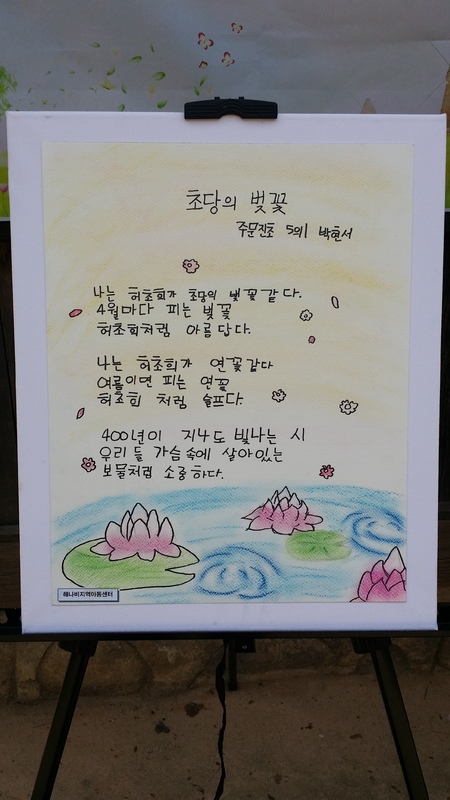 초당의 벚꽃
주문진초 5의1 박현서
나는 허초희가 초당의 벚꽃 같다.
4월마다 피는 벚꽃
허초희처럼 아름답다.
나는 허초희가 연꽃같다
여름이면 피는 연꽃
허초희 처럼 슬프다.
400년이 지나도 빛나는 시
우리들 가슴속에 살아있는
보물처럼 소중하다.
해나비지역아동센터